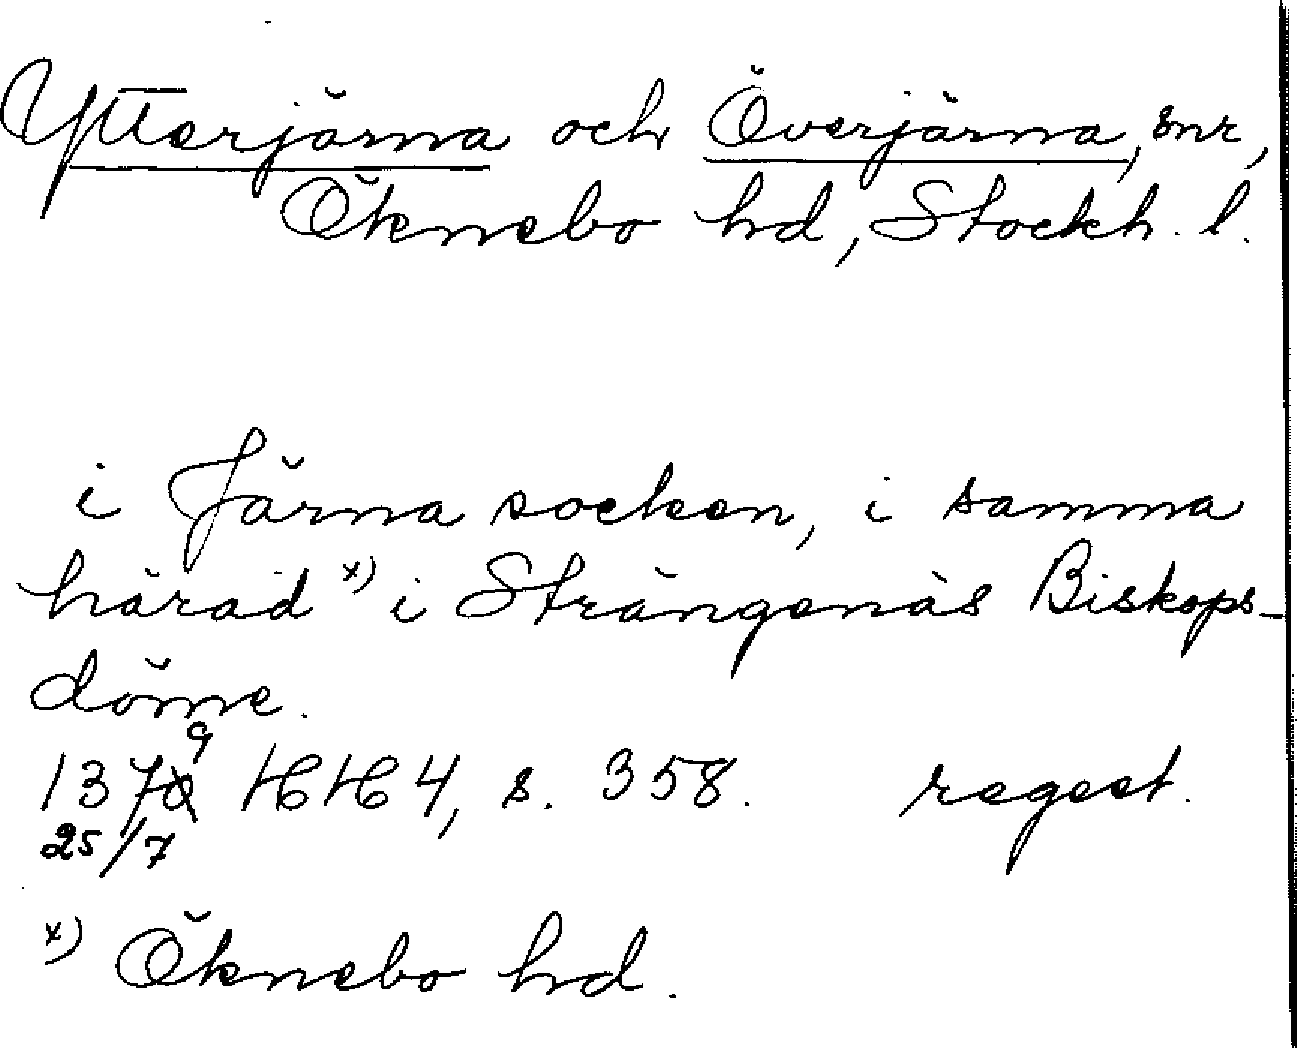 Ytterjärna och Överjärna, snr,
Öknebo hd, Stockh. l.
i Järna socken, i samma
härad x) i Strängenäs Biskops-
döme.
1379 HH 4, s. 358. regest.
25/7
x) Öknebo hd.